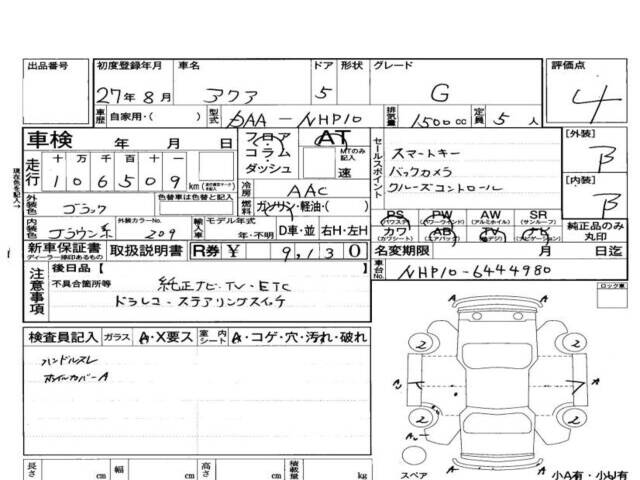 出品番号 初度登録年月 車名 ドア 形状 グレード 評価点
27年8月 アクア 5 G 4
車歴 自家用・( ) 型式 DAA-NHP10 排気量 1500cc 定員 5人
車検 年 月 日
フロア・コラム・ダッシュ AT MTのみ記入 速
現在色を記入→
走行 十万千百十 106509 km
冷房 AAC
セールスポイント
スマートキー
バックカメラ
クルーズコントロール
[外装] B
[内装] B
外装色 ブラック 色替車は色替と記入 燃料 ガソリン・軽油・( )
内装色 ブラウン系 外装カラーNo. 209 輸入車 モデル年式 年・不明 D車・並 右H・左H
PS (パワステ) PW (パワーウインド) AW (アルミホイル) SR (サンルーフ)
カワ (カワシート) AB (エアバック) TV ナビ (ナビゲーション)
純正品のみ丸印
新車保証書 ディーラー捺印あるもの 取扱説明書 R券 ¥ 9,130
名変期限 月 日迄
車台No. NHP10-6444980
注意事項 後日品【 】
不具合箇所等 純正ナビ・TV・ETC
ドラレコ・ステアリングスイッチ
ロック車
検査員記入 ガラス A・X要ス 室内シート A・コゲ・穴・汚れ・破れ
ハンドルスレ
ホイルカバーA
A
2 2
A A
2 2
A
スペア
A
長さ cm 幅 cm 高さ cm 積載量 kg
小A有・小U有